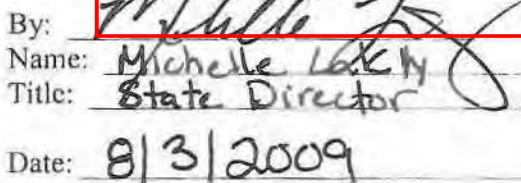 By:
Name: Michelle
Title: State Director
Date: 8/3/2009